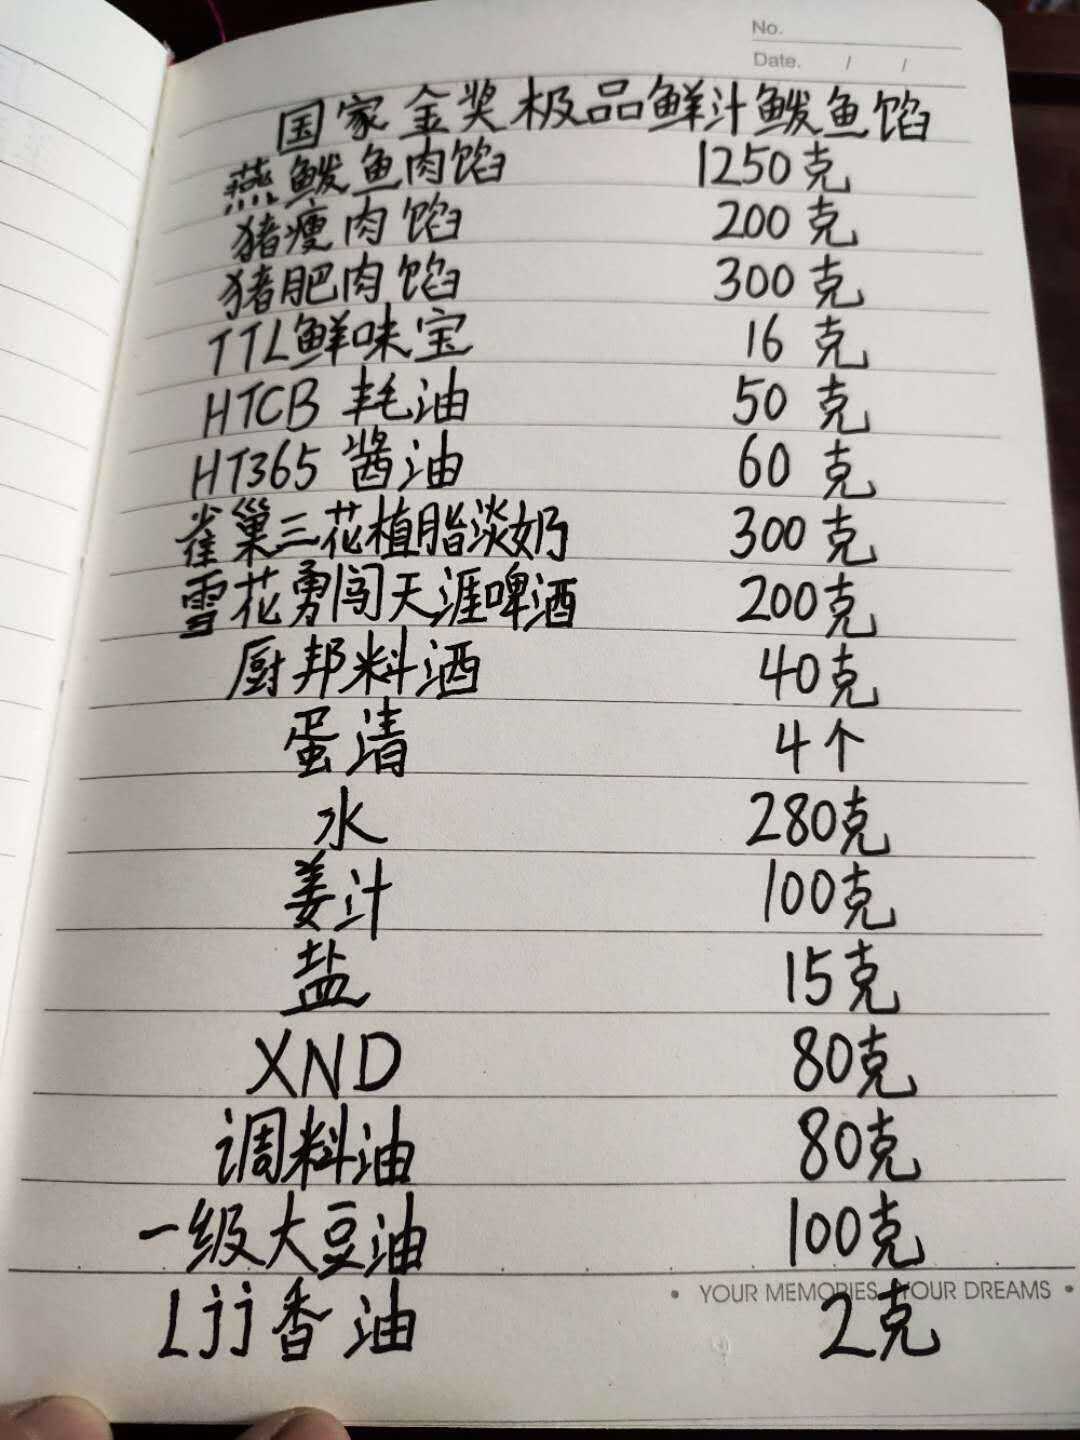 No.
Date. / /
国家金奖极品鲜汁鲅鱼馅
燕鲅鱼肉馅 1250克
猪瘦肉馅 200克
猪肥肉馅 300克
TTL鲜味宝 16克
HTCB 耗油 50克
HT365 酱油 60克
雀巢三花植脂淡奶 300克
雪花勇闯天涯啤酒 200克
厨邦料酒 40克
蛋清 4个
水 280克
姜汁 100克
盐 15克
XND 80克
调料油 80克
一级大豆油 100克
• YOUR MEMORIES, YOUR DREAMS •
Ljj香油 2克